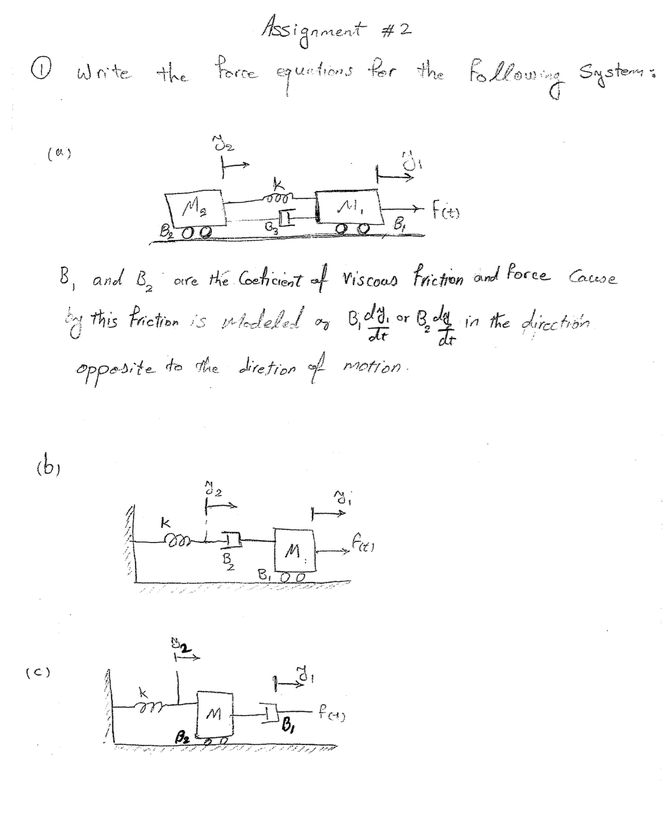 Assignment #2
① Write the force equations for the following System:
(a)
y2 y1
M2 k M1 f(t)
B2 B3 B1
B1 and B2 are the Coeficient of Viscous friction and force Cause
by this friction is modeled as B1 dy1/dt or B2 dy2/dt in the direction
opposite to the diretion of motion.
(b)
y2 y1
k B2 M1 f(t)
B1
(c)
y2 y1
k M B1 f(t)
B2